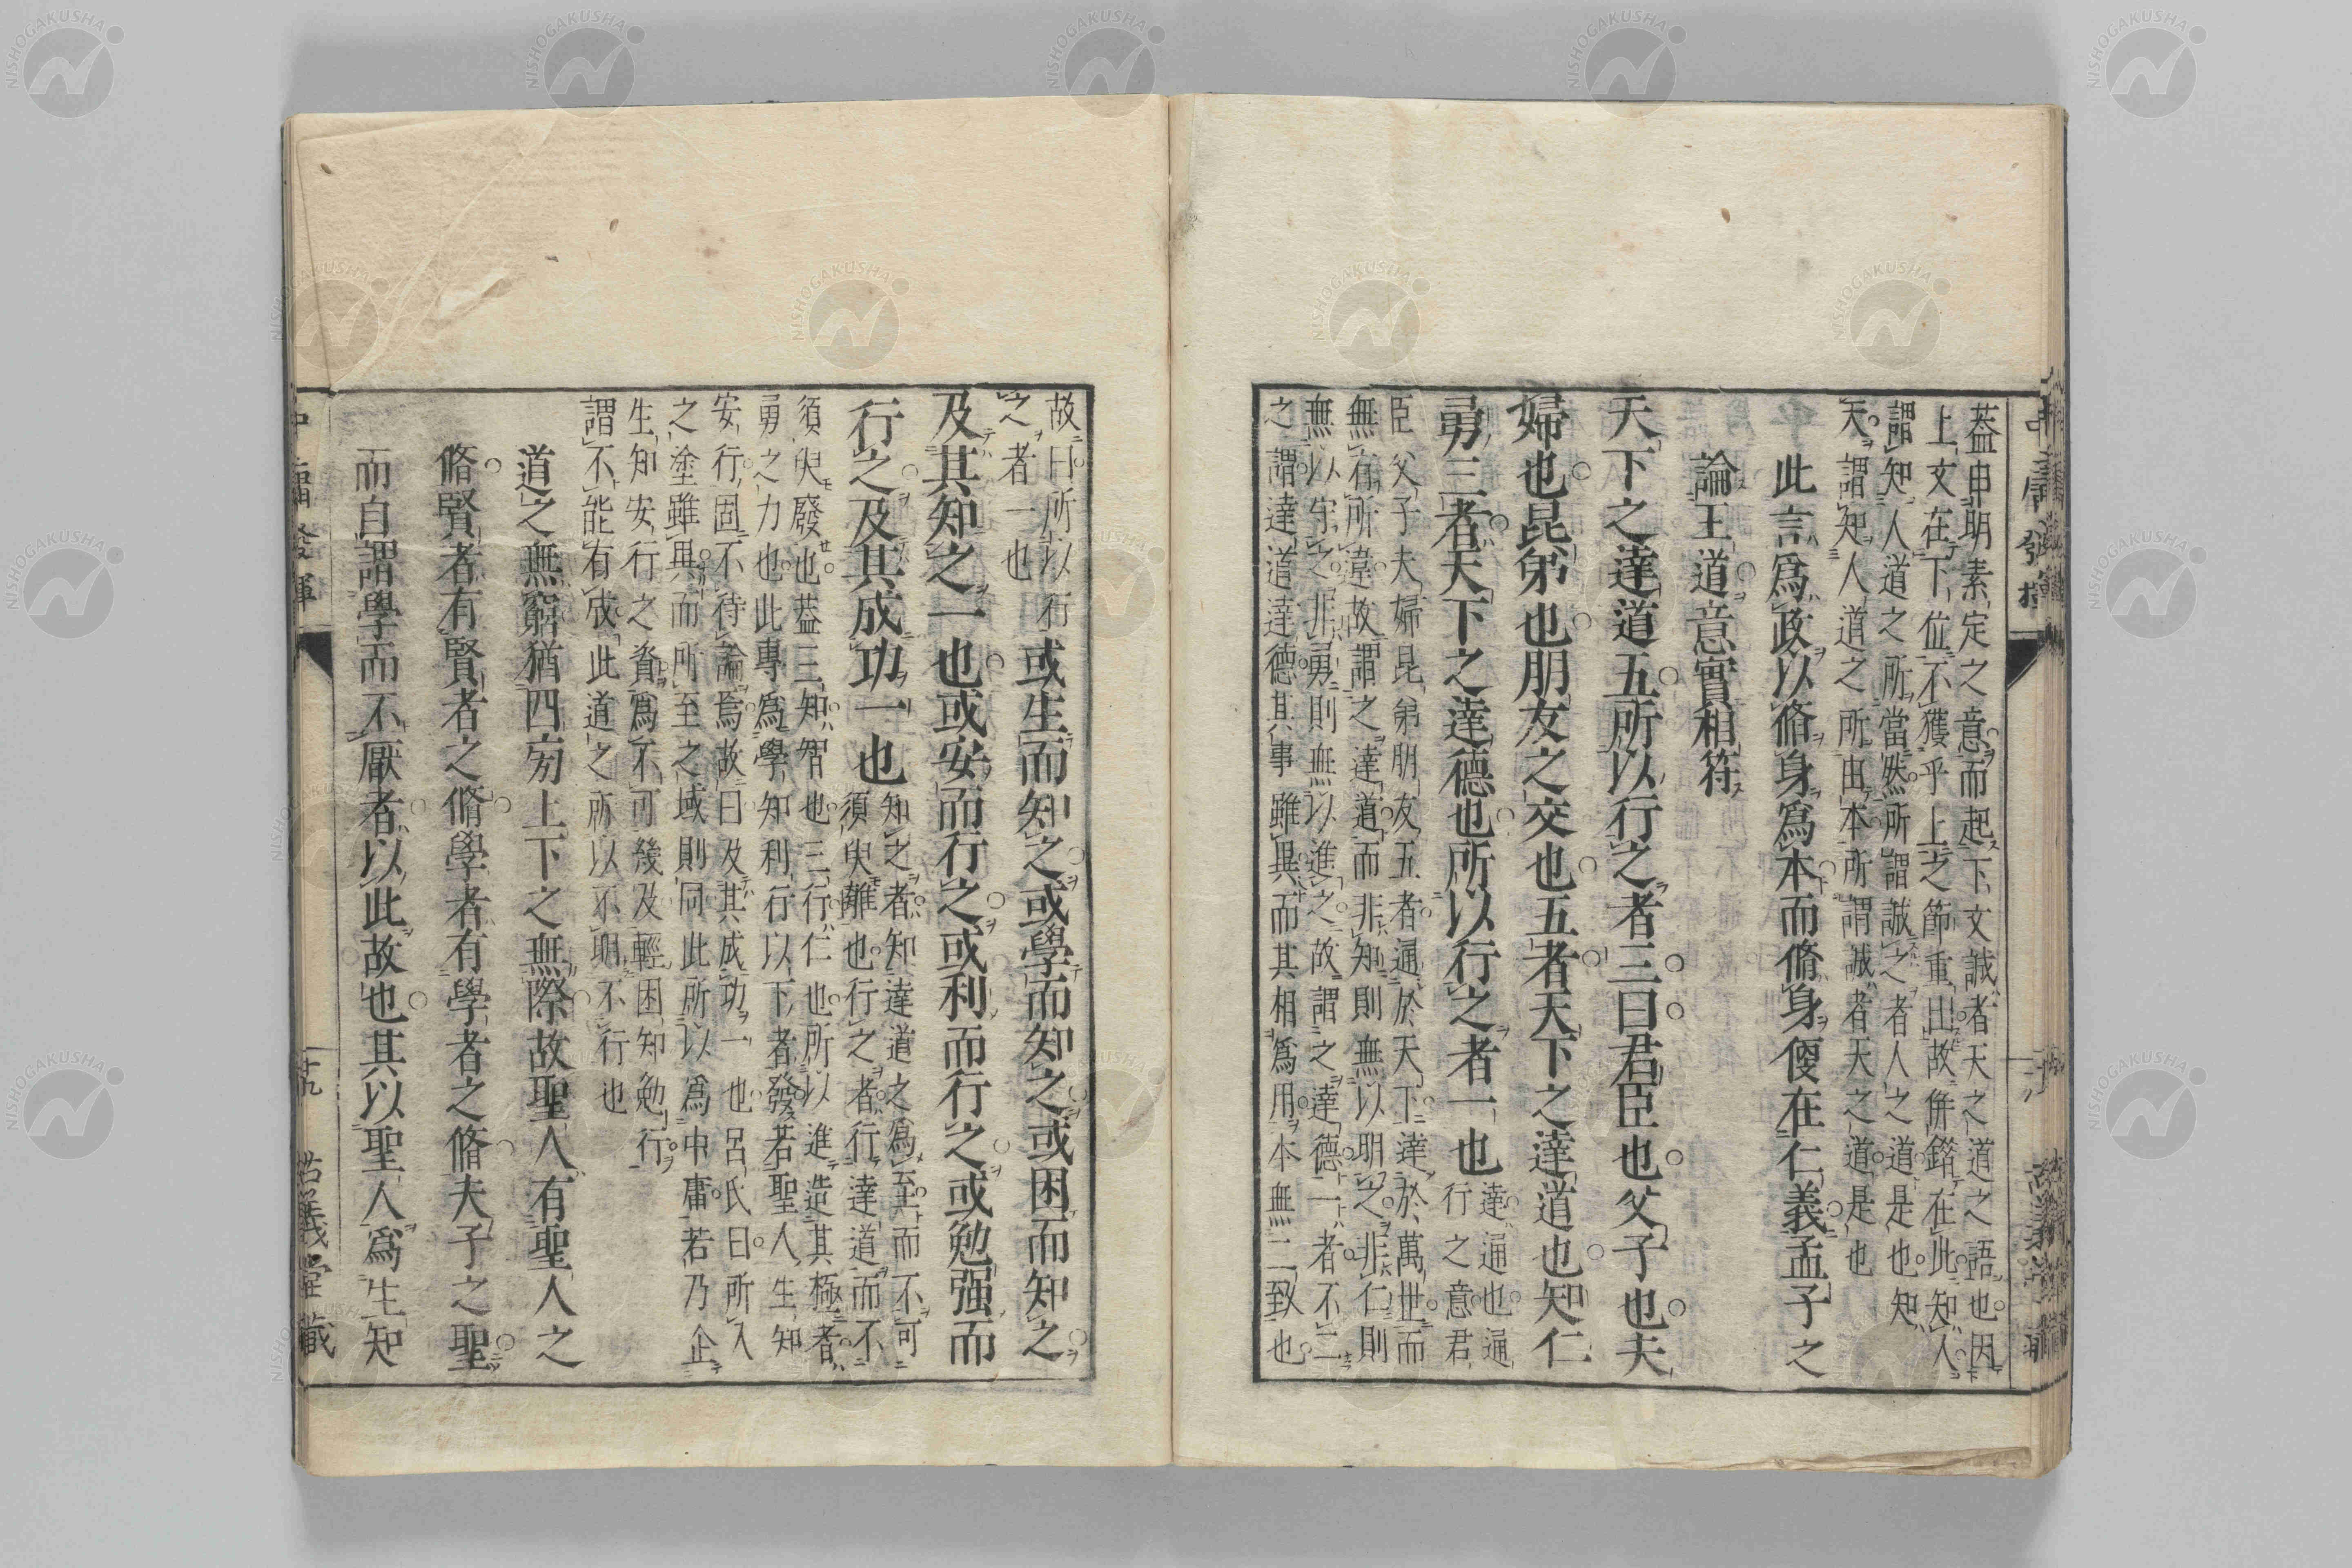 蓋申明素定之意而起下文誠者天之道之語也因
上文在下位不獲乎上之節重出故併錯在此知人
謂知人道之所當然所謂誠之者人之道是也知
天謂知人道之所由本所謂誠者天之道是也
此言爲政以脩身爲本而脩身便在仁義孟子之
論王道意實相符
天下之達道五所以行之者三曰君臣也父子也夫
婦也昆弟也朋友之交也五者天下之達道也知仁
勇三者天下之達德也所以行之者一也
達通也通
行之意君
臣父子夫婦昆弟朋友五者通於天下達於萬世而
無有所違故謂之達道而非知則無以明之非仁則
無以守之非勇則無以進之故謂之達德一者不二
之謂達道達德其事雖異而其相爲用本無二致也
故曰所以行
之者一也
或生而知之或學而知之或困而知之
及其知之一也或安而行之或利而行之或勉强而
行之及其成功一也
知之者知達道之爲至而不可
須臾離也行之者行達道而不
須臾廢也蓋三知智也三行仁也所以進造其極者
勇之力也此專爲學知利行以下者發若聖人生知
安行固不待論焉故曰及其成功一也呂氏曰所入
之塗雖異而所至之域則同此所以爲中庸若乃企
生知安行之資爲不可幾及輕困知勉行
謂不能有成此道之所以不明不行也
道之無窮猶四方上下之無際故聖人有聖人之
脩賢者有賢者之脩學者有學者之脩夫子之聖
而自謂學而不厭者以此故也其以聖人爲生知
中庸發揮
十九
古義堂藏